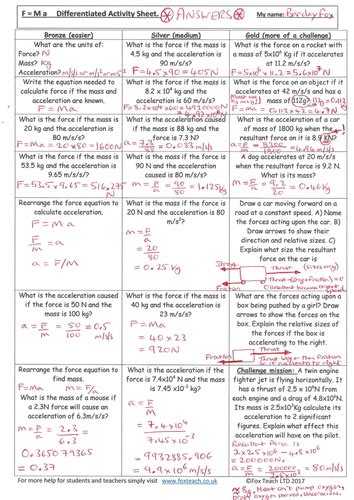 F = M a Differentiated Activity Sheet. ⊛ANSWERS⊛ My name: Barclay Fox
Bronze (easier)
What are the units of:
Force? N
Mass? kg
Acceleration? m/s/s or m/s² or ms⁻²
Write the equation needed to calculate force if the mass and acceleration are known.
F = Ma
What is the force if the mass is 20 kg and the acceleration is 80 m/s/s?
F=Ma = 20 x 80 = 1600N
What is the force if the mass is 53.5 kg and the acceleration is 9.65 m/s/s?
F = 53.5 x 9.65 = 516.275 N
Rearrange the force equation to calculate acceleration.
F = Ma
F/m = a
a = F/M
What is the acceleration if the force is 50 N and the mass is 100 kg?
a = F/m = 50/100 = 0.5 m/s/s
Rearrange the force equation to find mass.
F=Ma m=F/a
What is the mass of a mouse if a 2.3N force will cause an acceleration of 6.3m/s/s?
m = F/a = 2.3/6.3
0.365079365
= 0.37
Silver (medium)
What is the force if the mass is 4.5 kg and the acceleration is 90 m/s/s?
F=4.5 x 90 = 405N
What is the force if the mass is 8.2 x10⁴ kg and the acceleration is 60 m/s/s?
F=8.2x10⁴ x 60 = 4920000N
= 4.92x10⁶ N
What is the acceleration caused if the mass is 88 kg and the force is 7.3 N?
a = 7.3/88 = 0.083 m/s/s
What is the mass if the force is 90 N and the acceleration caused is 80 m/s/s?
m = F/a = 90/80 = 1.125kg
What is the mass if the force is 20 N and the acceleration is 80 m/s/s?
m = F/a
= 20/80
= 0.25 kg
What is the force if the mass is 40 kg and the acceleration is 23 m/s/s?
F = Ma
= 40 x 23
= 920N
What is the acceleration if the force is 7.4x10⁴ N and the mass is 7.45 x10⁻³ kg?
a = F/m
= 7.4x10⁴/7.45x10⁻³
= 9932885.906
= 9.9x10⁶ m/s/s
Gold (more of a challenge)
What is the force on a rocket with a mass of 5x10⁶ Kg if it accelerates at 11.2 m/s/s?
F=5x10⁶ x 11.2 = 5.6x10⁷ N
What is the force on an object if it accelerates at 42 m/s/s and has a mass of 112g?
F = Ma = 0.112 x 42 = 4.7N
What is the acceleration of a car of mass of 1800 kg when the resultant force on it is 8.9 kN?
A dog accelerates at 20 m/s/s when the resultant force is 9.2 N. What is its mass?
m = F/a = 9.2/20 = 0.46kg
Draw a car moving forward on a road at a constant speed. A) Name the forces acting upon the car. B) Draw arrows to show their direction and relative sizes. C) Explain what size the resultant force on the car is
Drag
Thrust
Friction
What are the forces acting upon a box being pushed by a girl? Draw arrows to show the forces. Explain the relative sizes of the forces if the box is accelerating to the right.
Friction
Thrust
Challenge mission: A twin engine fighter jet is flying horizontally. It has a thrust of 2.5 x10⁵N from each engine and a drag of 4.8x10⁵N. Its mass is 2.5x10³Kg calculate its acceleration to 2 significant figures. Explain what effect this acceleration will have on the pilot.
For more help for students and teachers visit www.foxteach.co.uk
©Fox Teach LTD 2017